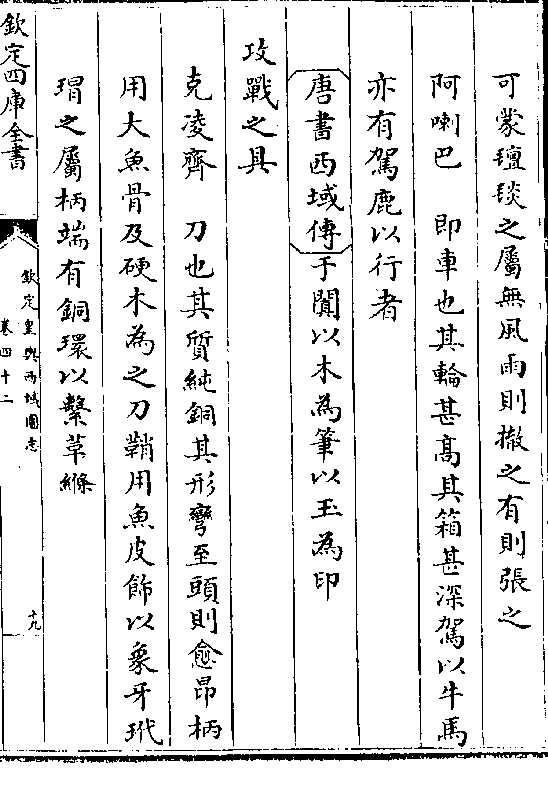 可蒙氊毯之屬無風雨則撤之有則張之
阿喇巴　即車也其輪甚髙其箱甚深駕以牛馬
亦有駕鹿以行者
唐書西域傳于闐以木為筆以玉為印
攻戰之具
克凌齊　刀也其質純銅其形彎至頭則愈昂柄
用大魚骨及硬木為之刀鞘用魚皮飾以象牙玳
瑁之屬柄端有銅環以繫革縧
欽定四庫全書
欽定皇輿西域圖志
卷四十二
十九